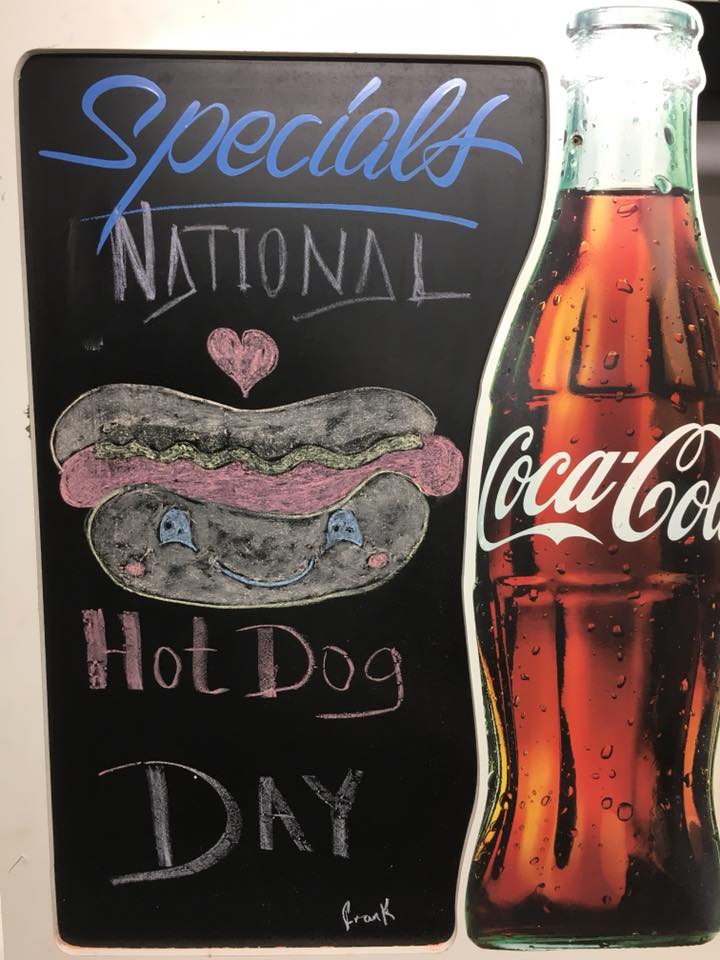 Specials
NATIONAL
Coca-Col
Hot Dog
DAY
Frank